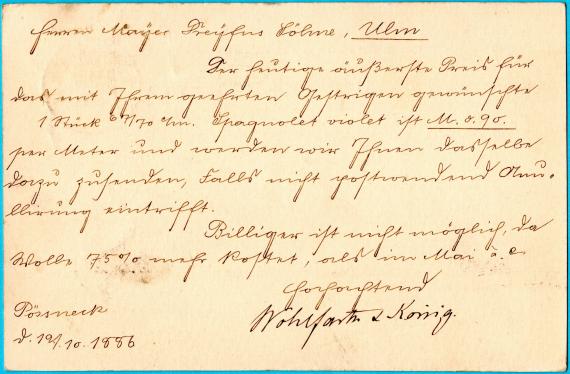 Herren Mayer Dreyfus Söhne, Ulm
Der heutige äußerste Preis für
das mit Ihrem geehrten Gestrigen gewünschte
1 Stück 67/70 c/m. Spagnolet violet ist M. 0.90.
per Meter und werden wir Ihnen dasselbe
dazu zusenden, Falls nicht postwendend Anu-
llirung eintrifft.
Billiger ist nicht möglich, da
Wolle 75% mehr kostet, als im Mai a. c.
Hochachtend
Wohlfarth & König.
Pössneck
d. 19/10. 1886